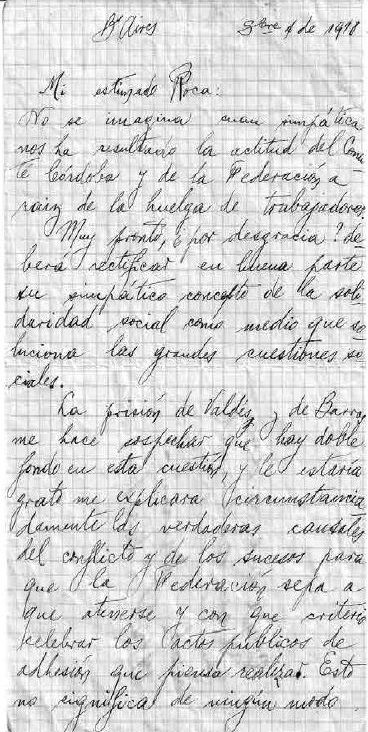 Bs Aires 9bre 4 de 1918
Mi estimado Roca:
No se imagina cuan simpática
nos ha resultado la actitud del Comi
té Córdoba y de la Federación a
raiz de la huelga de trabajadores.
Muy pronto, ¿por desgracia? de-
berá rectificar en buena parte
su simpático concepto de la soli
daridad social como medio que so-
luciona las grandes cuestiones so
ciales.
La prisión de Valdés y de Barros
me hace sospechar que hay doble
fondo en esta cuestión, y le estaría
grato me explicara circunstancia
damente las verdaderas causales
del conflicto y de los sucesos para
que la Federación sepa a
que atenerse y con que criterio
celebrar los actos públicos de
adhesión que piensa realizar. Esto
no significa de ningún modo